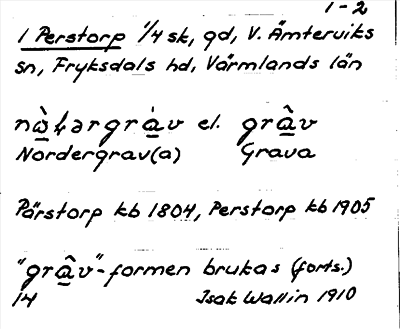 1-2
1 Perstorp 1/4 sk, gd, V. Ämterviks
sn, Fryksdals hd, Värmlands län
el. grâv
Nordergrav(a) Grava
Pärstorp kb 1804, Perstorp kb 1905
"grâv"-formen brukas (forts.)
14 Isak Wallin 1910